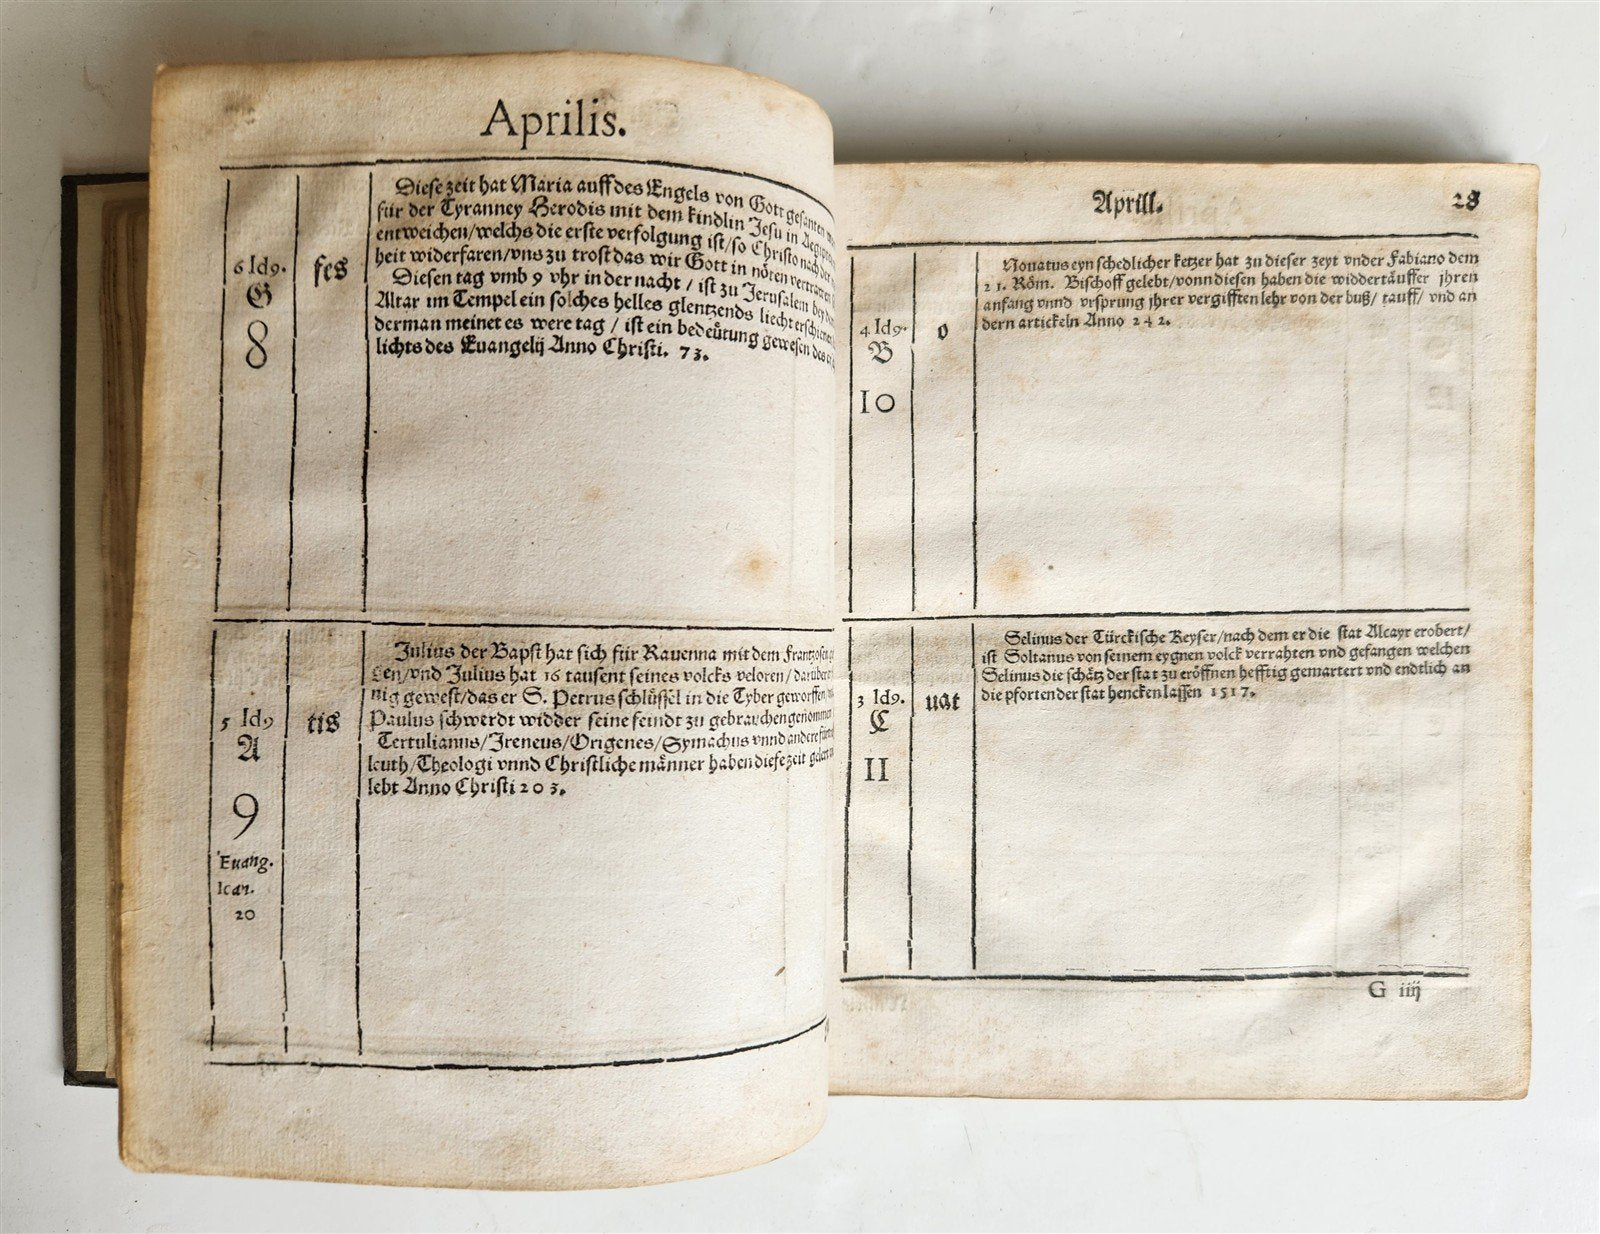 Aprilis.
6 Idꝰ.
G
8
fes
Diese zeit hat Maria auff des Engels von Gott gesanten
für der Tyranney Herodis mit dem kindlin Jesu in Aegipten
entweichen/welchs die erste verfolgung ist/so Christo nach der
heit widerfaren/vns zu trost das wir Gott in nöten vertrawen
Diesen tag vmb 9 vhr in der nacht / ist zu Jerusalem bey dem
Altar im Tempel ein solches helles glentzends liecht erschienen
derman meinet es were tag / ist ein bedeütung gewesen des
lichts des Euangelij Anno Christi. 73.
5 Idꝰ
A
9
Euang.
Icar.
20
tis
Julius der Bapst hat sich für Rauenna mit dem Frantzosen
gen/vnd Julius hat 16 tausent seines volcks veloren/darüber
nig gewest/das er S. Petrus schlüssel in die Tyber geworffen
Paulus schwerdt widder seine feindt zu gebrauchen genommen
Tertulianus/Ireneus/Origenes/Symachus vnnd andere
leuth/Theologi vnnd Christliche männer haben diese zeit
lebt Anno Christi 203.
Aprill. 28
4 Idꝰ.
B
10
o
Nouatus eyn schedlicher ketzer hat zu dieser zeyt vnder Fabiano dem
21. Röm. Bischoff gelebt/vonn diesen haben die widdertäuffer jhren
anfang vnnd vrsprung jhrer vergifften lehr von der buß/ tauff/ vnd an
dern artickeln Anno 242.
3 Idꝰ.
C
11
uat
Selinus der Türckische Keyser/nach dem er die stat Alcayr erobert/
ist Soltanus von seinem eygnen volck verrahten vnd gefangen welchen
Selinus die schätz der stat zu eröffnen hefftig gemartert vnd endtlich an
die pforten der stat hencken lassen 1517.
G iiij